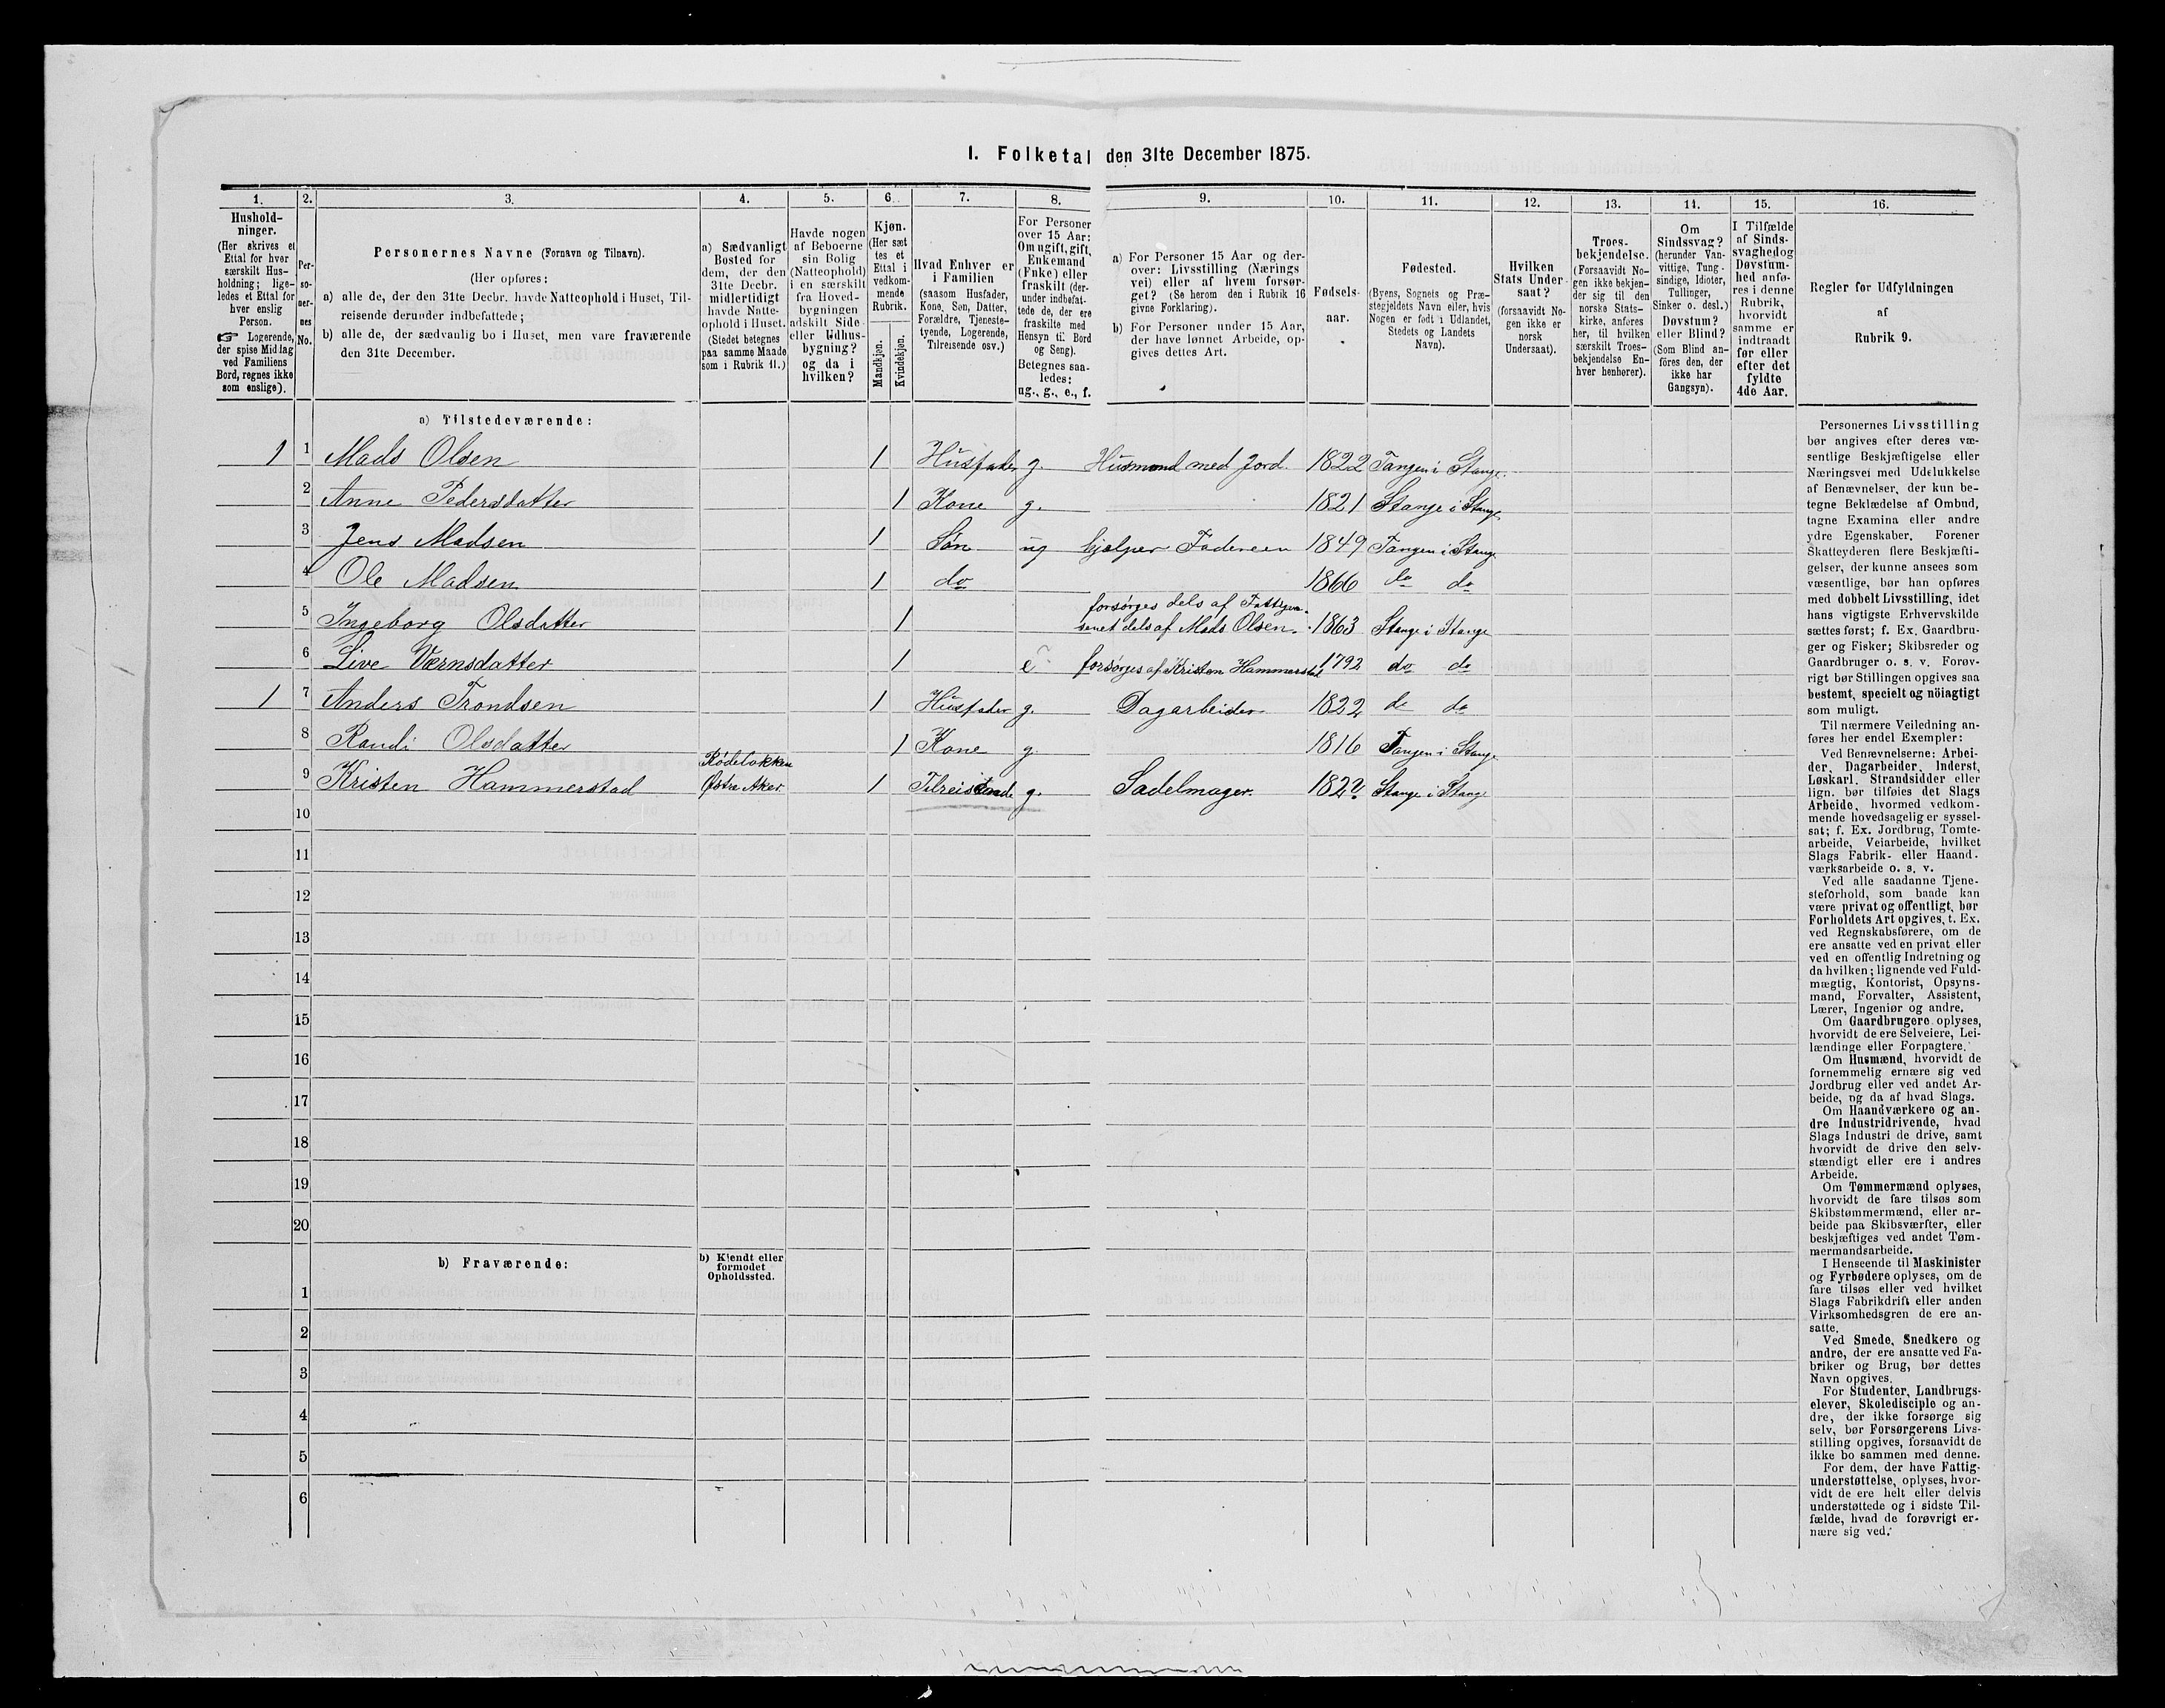 I. Folketal den 31te December 1875.
1. 2. 3. 4. 5. 6. 7. 8. 9. 10. 11. 12. 13. 14. 15. 16.
Hushold-
ninger.
(Her skrives et
Ettal for hver
særskilt Hus-
holdning; lige-
ledes et Ettal for
hver enslig
Person.
☞ Logerende,
der spise Middag
ved Familiens
Bord, regnes ikke
som enslige).
Per-
so-
ner-
nes
No.
Personernes Navne (Fornavn og Tilnavn).
(Her opføres:
a) alle de, der den 31te Decbr. havde Natteophold i Huset, Til-
reisende derunder indbefattede;
b) alle de, der sædvanlig bo i Huset, men vare fraværende
den 31te December.
a) Sædvanligt
Bosted for
dem, der den
31te Decbr.
midlertidigt
havde Natte-
ophold i Huset.
(Stedet betegnes
paa samme Maade
som i Rubrik 11.)
Havde nogen
af Beboerne
sin Bolig
(Natteophold)
i en særskilt
fra Hoved-
bygningen
adskilt Side-
eller Udhus-
bygning?
og da i
hvilken?
Kjøn.
(Her sæt
tes et
Ettal i
vedkom-
mende
Rubrik.
Mandkjøn.
Kvindekjøn.
Hvad Enhver er
i Familien
(saasom Husfader,
Kone, Søn, Datter,
Forældre, Tjeneste-
tyende, Logerende,
Tilreisende osv.)
For Personer
over 15 Aar:
Om ugift, gift,
Enkemand
(Enke) eller
fraskilt (der-
under indbefat-
tede de, der ere
fraskilte med
Hensyn til Bord
og Seng).
Betegnes saa-
ledes:
ug., g., e., f.
a) For Personer 15 Aar og der-
over: Livsstilling (Nærings
vei) eller af hvem forsør-
get? (Se herom den i Rubrik 16
givne Forklaring).
b) For Personer under 15 Aar,
der have lønnet Arbeide, op-
gives dettes Art.
Fødsels-
aar.
Fødested.
(Byens, Sognets og Præ-
stegjeldets Navn eller, hvis
Nogen er født i Udlandet,
Stedets og Landets
Navn).
Hvilken
Stats Under-
saat?
(forsaavidt No-
gen ikke er
norsk
Undersaat).
Troes-
bekjendelse.
(Forsaavidt No-
gen ikke bekjen-
der sig til den
norske Stats-
kirke, anføres
her, til hvilken
særskilt Troes-
bekjendelse En-
hver henhører).
Om
Sindssvag?
(herunder Van-
vittige, Tung-
sindige, Idioter,
Tullinger,
Sinker o. desl.)
Døvstum?
eller Blind?
(Som Blind an-
føres den, der
ikke har
Gangsyn).
I Tilfælde
af Sinds-
svaghed og
Døvstum-
hed anfø-
res i denne
Rubrik,
hvorvidt
samme er
indtraadt
før eller
efter det
fyldte
4de Aar.
Regler for Udfyldningen
af
Rubrik 9.
a) Tilstedeværende:
1 1 Mads Olsen 1 Husfader g. Husmand med Jord. 1822 Tangen i Stange
2 Anne Pedersdatter 1 Kone g. 1821 Stange i Stange
3 Jens Madsen 1 Søn ug hjelper Faderen 1849 Tangen i Stange
4 Ole Madsen 1 do 1866 do do
forsørges dels af Fattigvæ-
5 Ingeborg Olsdatter 1 senet dels af Mads Olsen. 1863 Stange i Stange
6 Live Værnsdatter 1 e forsørges af Kristen Hammerstad 1792 do do
1 7 Anders Trondsen 1 Husfader g. Dagarbeider 1822 do do
8 Randi Olsdatter 1 Kone g. 1816 Tangen i Stange
Rødeløkken
9 Kristen Hammerstad Østre Aker 1 Tilreisende g. Sadelmager. 182? Stange i Stange
10
11
12
13
14
15
16
17
18
19
20
b) Fraværende:
b) Kjendt eller
formodet
Opholdssted.
1
2
3
4
5
6
Personernes Livsstilling
bør angives efter deres væ-
sentlige Beskjæftigelse eller
Næringsvei med Udelukkelse
af Benævnelser, der kun be-
tegne Beklædelse af Ombud,
tagne Examina eller andre
ydre Egenskaber. Forener
Skatteyderen flere Beskjæfti-
gelser, der kunne ansees som
væsentlige, bør han opføres
med dobbelt Livsstilling, idet
hans vigtigste Erhvervskilde
sættes først; f. Ex. Gaardbru-
ger og Fisker; Skibsreder og
Gaardbruger o. s. v. Forøv-
rigt bør Stillingen opgives saa
bestemt, specielt og nöiagtigt
som muligt.
Til nærmere Veiledning an-
føres her endel Exempler:
Ved Benævnelserne: Arbei-
der, Dagarbeider, Inderst,
Løskarl, Strandsidder eller
lign. bør tilføies det Slags
Arbeide, hvormed vedkom-
mende hovedsagelig er syssel-
sat; f. Ex. Jordbrug, Tomte-
arbeide, Veiarbeide, hvilket
Slags Fabrik- eller Haand-
værksarbeide o. s. v.
Ved alle saadanne Tjene-
steforhold, som baade kan
være privat og offentligt, bør
Forholdets Art opgives, t. Ex.
ved Regnskabsførere, om de
ere ansatte ved en privat eller
ved en offentlig Indretning og
da hvilken; lignende ved Fuld-
mægtig, Kontorist, Opsyns-
mand, Forvalter, Assistent,
Lærer, Ingeniør og andre.
Om Gaardbrugere oplyses,
hvorvidt de ere Selveiere, Lei-
lændinge eller Forpagtere.
Om Husmænd, hvorvidt de
fornemmelig ernære sig ved
Jordbrug eller ved andet Ar-
beide, og da af hvad Slags.
Om Haandværkere og an-
dre Industridrivende, hvad
Slags Industri de drive, samt
hvorvidt de drive den selv-
stændigt eller ere i andres
Arbeide.
Om Tømmermænd oplyses,
hvorvidt de fare tilsøs som
Skibstømmermænd, eller ar-
beide paa Skibsværfter, eller
beskjæftiges ved andet Tøm-
mermandsarbeide.
I Henseende til Maskinister
og Fyrbødere oplyses, om de
fare tilsøs eller ved hvilket
Slags Fabrikdrift eller anden
Virksomhedsgren de ere an-
satte.
Ved Smede, Snedkere og
andre, der ere ansatte ved Fa-
briker og Brug, bør dettes
Navn opgives.
For Studenter, Landbrugs-
elever, Skoledisciple og an-
dre, der ikke forsørge sig
selv, bør Forsørgerens Livs-
stilling opgives, forsaavidt de
ikke bo sammen med denne.
For dem, der have Fattig-
understøttelse, oplyses, hvor-
vidt de ere helt eller delvis
understøttede og i sidste Til-
fælde, hvad de forøvrigt er-
nære sig ved.